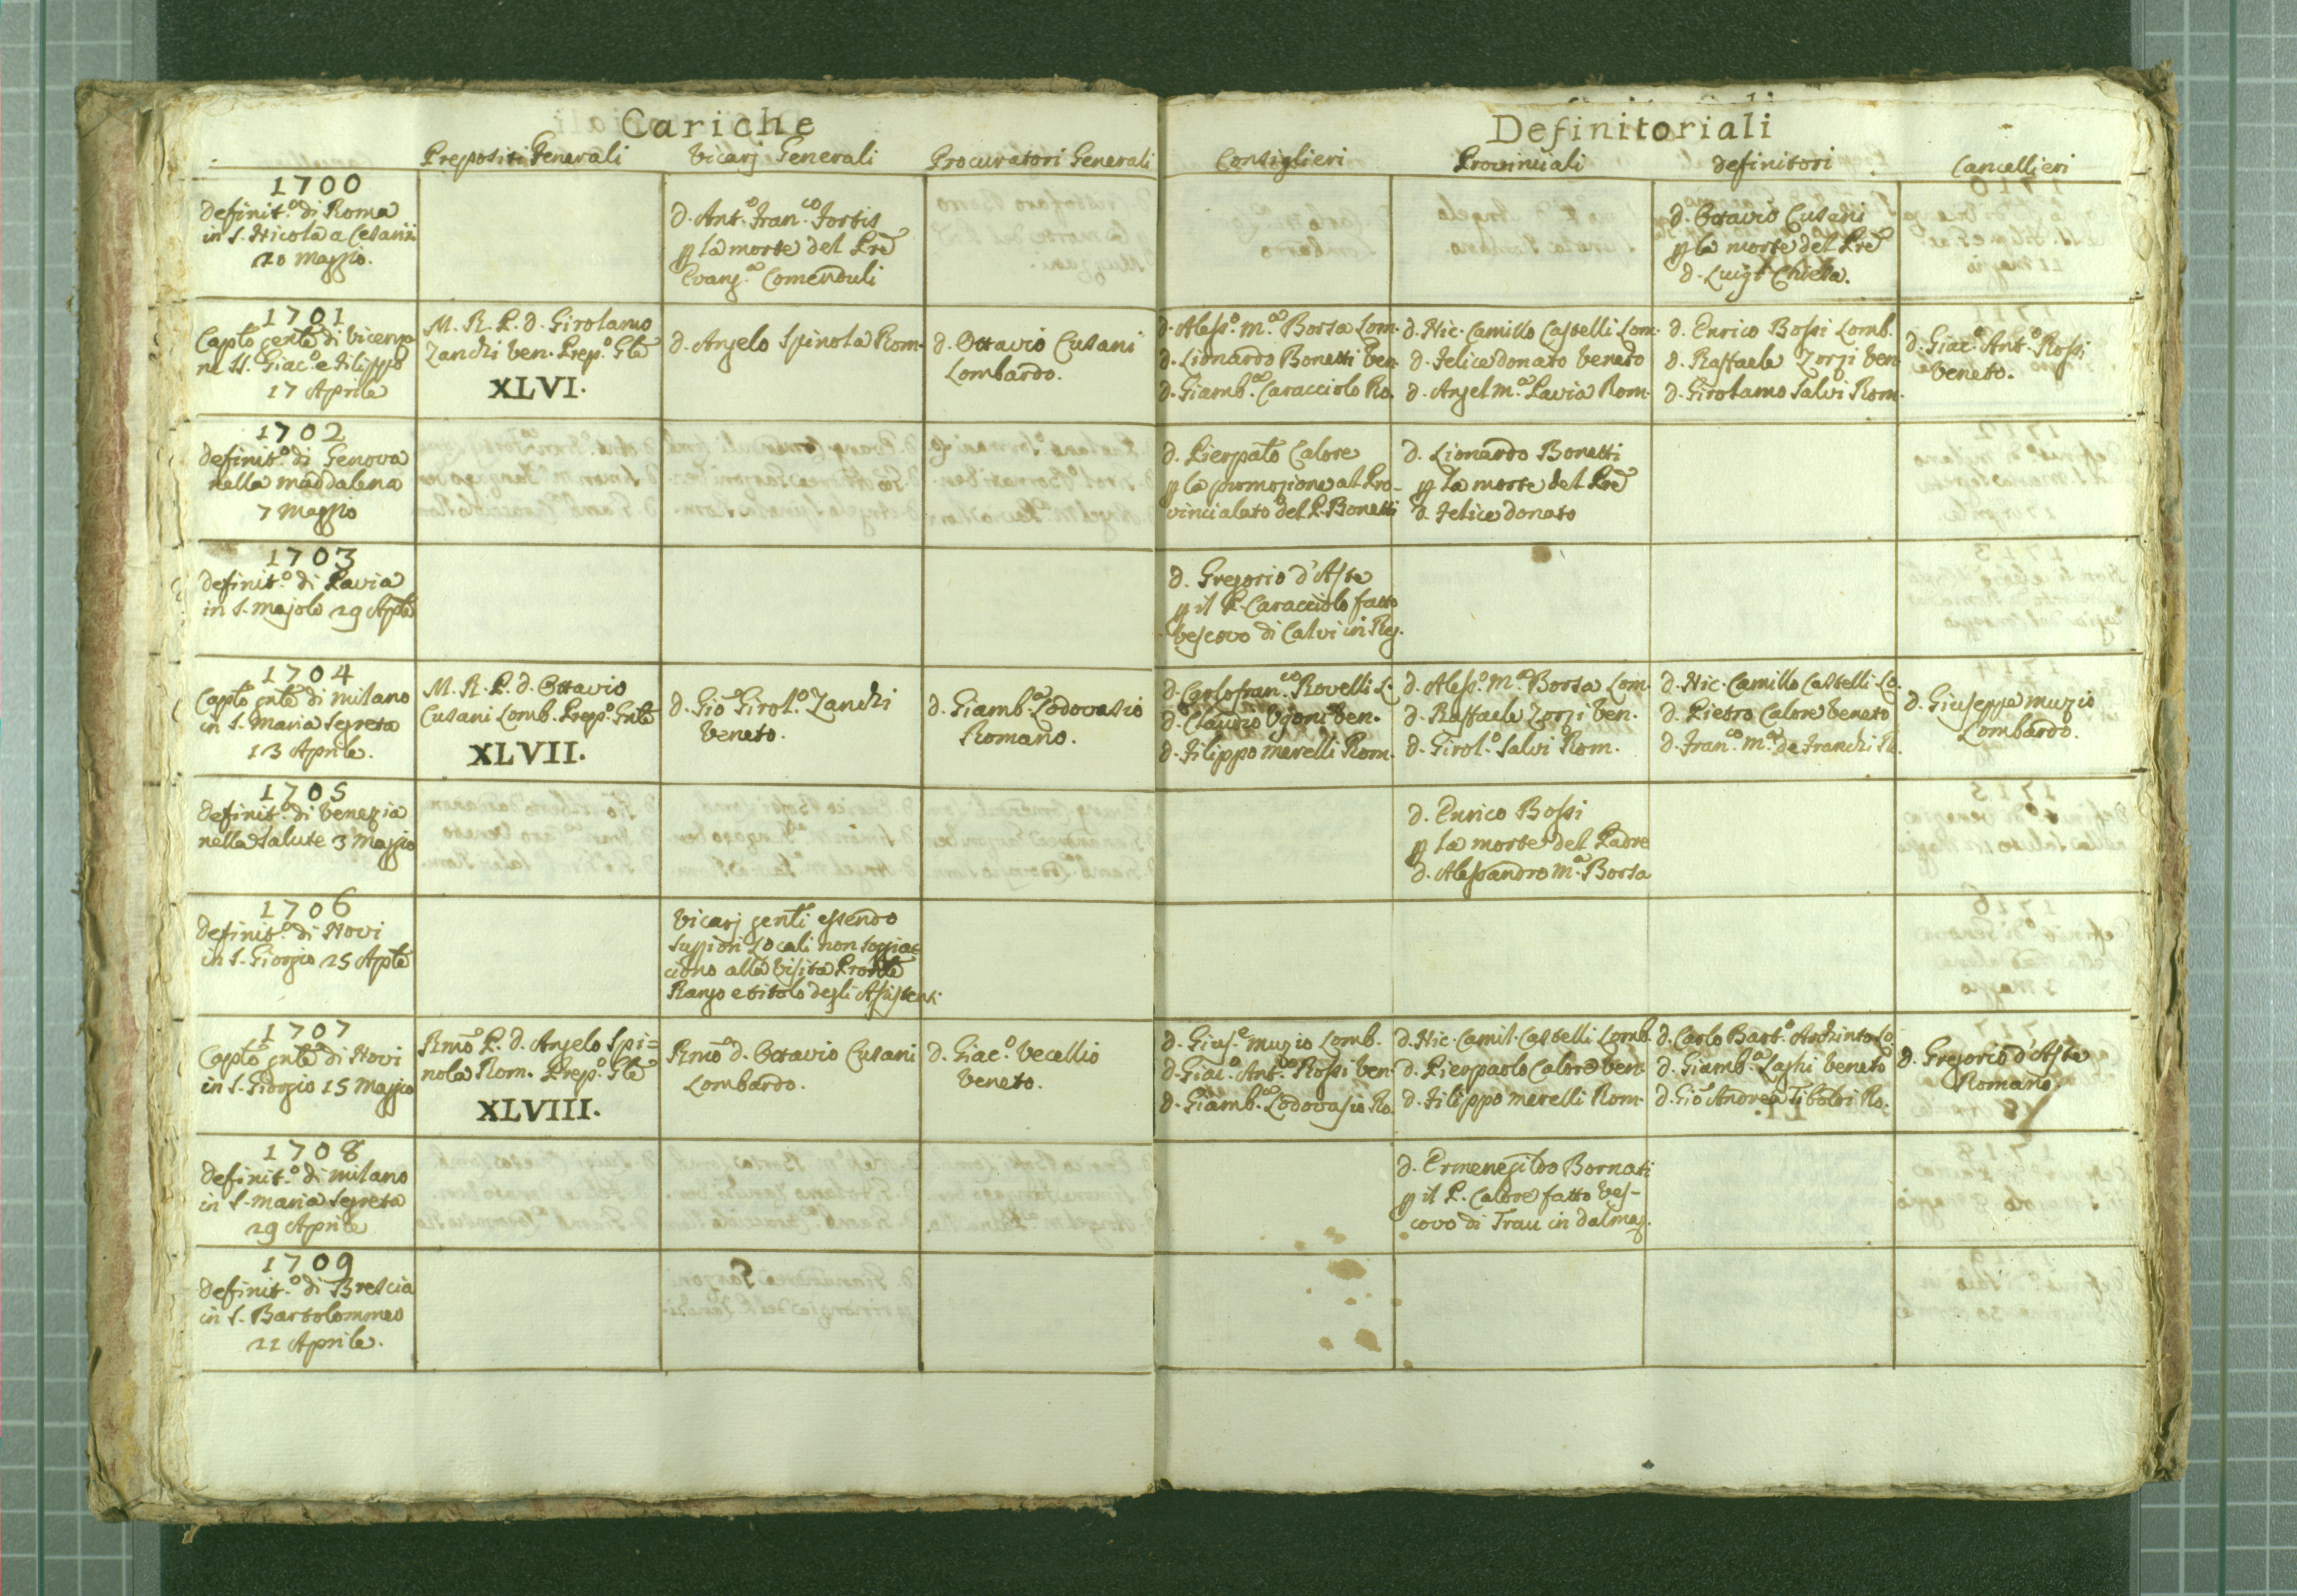 Cariche
Definitoriali
Prepositi Generali
Vicarj Generali
Procuratori Generali
Consiglieri
Provinciali
Definitori
Cancellieri
1700
Definit.º di Roma
in S. Nicola a Cesarini
20 Maggio.
d. Ant.º Fran.co Fortis
p la morte del Prē
Evang.ta Comenduli
d. Ottavio Cusani
p la morte del Prē
d. Luigi Chiesa.
1701
Capto gente di Vicenza
ne SS. Giac.º e Filippo
17 Aprile
M. R. P. d. Girolamo
Zanchi Ven. Prep.º Gle
XLVI.
d. Angelo Spinola Rom.
d. Ottavio Cusani
Lombardo.
d. Aless.º M.a Borsa Lom.
d. Lionardo Bonetti Ven.
d. Giamb.ta Caracciolo Ro.
d. Nic. Camillo Castelli Lom.
d. Felice Donato Veneto
d. Angel M.a Pavia Rom.
d. Enrico Bossi Lomb.
d. Raffaele Zorzi Ven
d. Girolamo Salvi Rom.
d. Giac.º Ant.º Rossi
Veneto.
1702
Definit.º di Genova
nella Maddalena
7 Maggio
d. Pierpalo Calore
p la promozione al Pro-
vincialato del P. Bonetti
d. Lionardo Bonetti
p la morte del Prē
d. Felice Donato
1703
Definit.º di Pavia
in S. Majolo 29 Aple
d. Gregorio d'Aste
p il P. Caracciolo fatto
Vescovo di Calvi in Reg.
1704
Capto gnle di Milano
in S. Maria Segreta
13 Aprile.
M. R. P. d. Ottavio
Cusani Lomb. Prep.º Gnle
XLVII.
d. Gio Girol.º Zanchi
Veneto.
d. Giamb.a Lodovasio
Romano.
d. Carlofran.co Rovelli L.
d. Claudio Ugoni Ven.
d. Filippo Merelli Rom.
d. Aless.º M.a Borsa Lom.
d. Raffaele Zorzi Ven.
d. Girol.º Salvi Rom.
d. Nic. Camillo Castelli Lo.
d. Pietro Calore Veneto
d. Fran.co M.a de Franchi R.
d. Giuseppe Muzio
Lombardo.
1705
Definit.º di Venezia
nella Salute 3 Maggio
d. Enrico Bossi
p la morte del Padre
d. Alessandro M.a Borsa
1706
Definit.º di Novi
in S. Giorgio 25 Aple
Vicarj genli essendo
Suppiori Locali non soggiac
ciono alla Visita Pronle
Rango e titolo degli Assistenti
1707
Capto gnle di Novi
in S. Giorgio 15 Maggio
Rmo P. d. Angelo Spi=
nola Rom. Prep.º Gle
XLVIII.
Rmo d. Ottavio Cusani
Lombardo.
d. Giac.º Vecellio
Veneto.
d. Gius.e Muzio Lomb.
d. Giac.º Ant.º Rossi Ven.
d. Giamb.ta Lodovasio Ro.
d. Nic. Camil. Castelli Lomb.
d. Pierpaolo Calore Ven.
d. Filippo Merelli Rom.
d. Carlo Bart.º Archinto Lo
d. Giamb.a Laghi Veneto
d. Gio Andrea Tiboldi Ro.
d. Gregorio d'Aste
Romano.
1708
Definit.º di Milano
in S. Maria Segreta
29 Aprile
d. Ermenegildo Bornati
p il P. Calore fatto Ves-
covo di Trau in Dalmaz.
1709
Definit.º di Brescia
in S. Bartolommeo
21 Aprile.